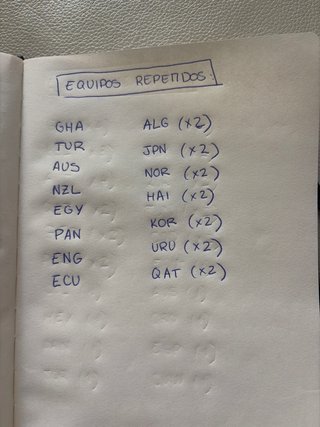 EQUIPOS REPETIDOS:
GHA
TUR
AUS
NZL
EGY
PAN
ENG
ECU
ALG (x2)
JPN (x2)
NOR (x2)
HAI (x2)
KOR (x2)
URU (x2)
QAT (x2)